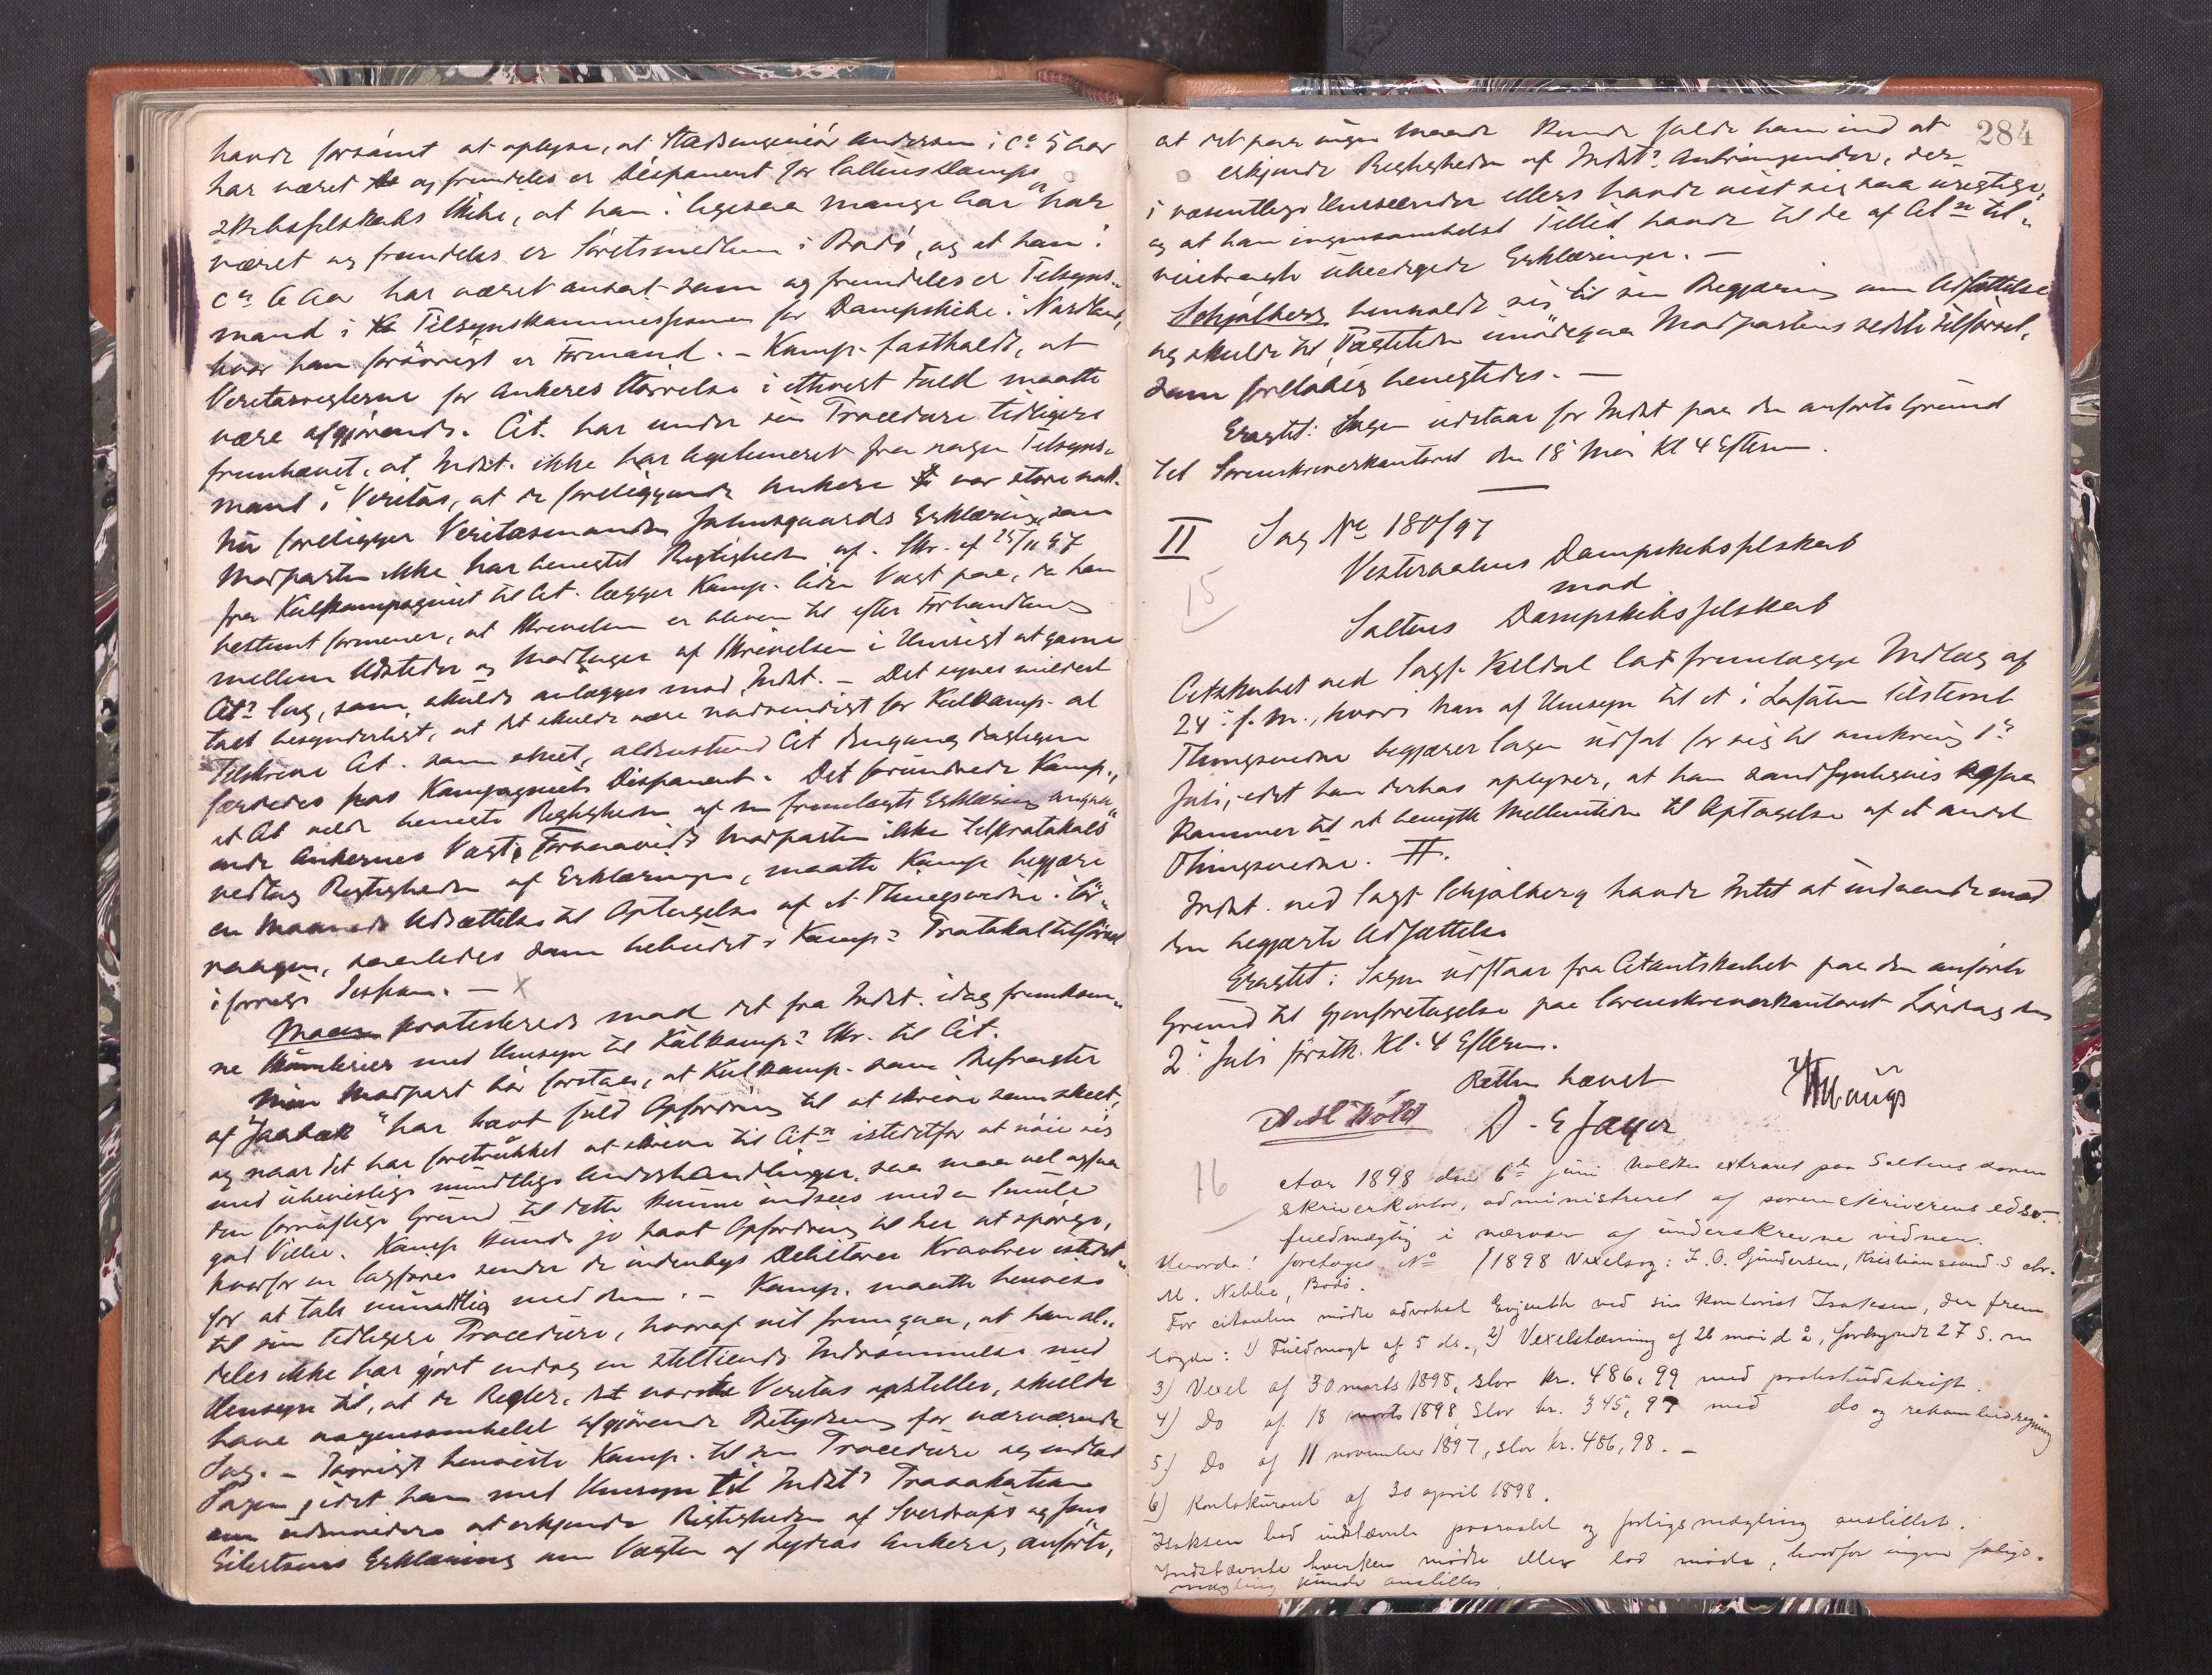 havde forsømt at oplyse, at Stadsingeniør Andersen i ca 5 Aar
har været og fremdeles er Disponent for Saltens Damp-
skibsselskabs Skibe, at han i ligesaa mange Aar har
været og fremdeles er Søretsmedlem i Bodø, og at han i
ca 6 Aar har været ansat som og fremdeles er Tilsyns-
mand i Tilsynskommissionen for Dampskibe i Nordland,
hvor han forøvrigt er Formand. - Kamp. fastholdt, at
Veritasreglerne for Ankeres Størrelse i ethvert Fald maatte
være afgjørende. Cit. har under sin Procedure tidligere
fremhævet, at Indst. ikke har legitimeret fra nogen Tilsyns-
mand i Veritas, at de foreliggende Ankere var store nok.
Nu foreligger Veritasmanden Erklæring, som
Modparten ikke har benegtet Rigtigheden af. Skr. af 25/11 97
fra Kulkompagniet til Cit. lægger Kamp. liden Vægt paa, da han
bestemt formener, at Skrivelsen er bleven til efter Forhandling
mellem Udsteder og Modtager af Skrivelsen i Hensigt at gavne
Cits Sag, som skulde anlægges mod Indst. - Det synes mildest
talt besynderligt, at det skulde være nødvendigt for Kulkomp. at
tilskrive Cit. som skeet, allenstund Cit dengang dagligen
færdedes hos Kompagniets Disponent. Det forundrede Kamp.,
at Cit vilde benegte Rigtigheden af den fremlagte Erklæring angaa-
ende Ankernes Vægt. Forsaavidt Modparten ikke tilprotokols
vedtog Rigtigheden af Erklæringen, maatte Kamp begjære
en Maaneds Udsættelse til Optagelse af et Thingsvidne i
vaagen, saaledes som bebudet i Kamps Protokoltilførsel
i forrige Session. - x
Moen protesterede mod det fra Indst. idag fremkom-
ne med Hensyn til Kulkomps Skr. til Cit.
Min Modpart bør forstaa, at Kulkomp. som Befragter
af "Jaabæk" har havt fuld Opfordring til at skrive som skeet,
og naar det har foretrukket at skrive til Citn istedetfor at nøie sig
med ubeviselige mundtlige Underhandlinger, saa maa vel ogsaa
den fornuftige Grund til dette kunne indsees med en Smule
god Villie. Kamp kunde jo havt Opfordring til her at spørge,
hvorfor en Sagfører sender de indenbys Debitorer Kravbrev istedet-
for at tale mundtlig med dem. - Kamp. maatte henvise
til sin tidligere Procedure, hvoraf vil fremgaa, at han al-
deles ikke har gjort endog en stiltiende Indrømmelse med
Hensyn til, at de Regler, det norske Veritas opstiller, skulde
have nogensomhelst afgjørende Betydning for nærværende
Sag. - Iøvrigt henviste Kamp. til sin Procedure og indlod
Sagen, idet han med Hensyn til Indsts Provokation
om udenvidere at erkjende Rigtigheden af Sverdrups og Jens
Eilertsens Erklæring om Vægten af Lydias Ankere, anførte,
284
at det paa ingen Maade kunde falde ham ind at
erkjende Rigtigheden af Indsts Anbringender, der
i væsentlige Henseender ellers havde vist sig saa urigtige,
og at han ingensomhelst Tillid havde til de af Citn til-
veiebragte ubeedigede Erklæringer. -
Schjølberg henholdt sig til sin Begjæring om Udsættelse
og skulde til Tægtetiden imødegaa Modpartens sidste Tilførsel,
som foreløbig benegtedes. -
Eragtet: Sagen udstaar for Indst paa den anførte Grund
til Sorenskriverkontoret den 18 Mai Kl 4 Efterm.
II Sag No 180/97
15
Vesteraalens Dampskibsselskab
mod
Saltens Dampskibsselskab
Citskabet ved Sagf. Kildal lod fremlægge Indlæg af
24 f. m., hvori han af Hensyn til et i Lofoten tilstemt
Thingsvidne begjærer Sagen udsat for sig til omkring 1s
Juli, idet han derhos oplyser, at han sandsynligvis ogsaa
kommer til at benytte Mellemtiden til Optagelse af et andet
Thingsvidne. II.
Indst. ved Sagf Schjølberg havde Intet at indvende mod
den begjærte Udsættelse
Eragtet: Sagen udstaar fra Citantskabet paa den anførte
Grund til Gjenforetagelse paa Sorenskriverkontoret Lørdag den
2 Juli førstk. Kl. 4 Efterm.
Retten hævet
D. E Jager
16
Aar 1898 den 6te juni holdtes extraret paa Saltens soren
skriverkontor, administreret af sorenskriverens edsv.
fuldmægtig i nærvær af underskrevne vidner.
Hvorda: foretoges No /1898 Vexelsag: J. O. Gundersen, Kristianssund S ctr.
M. Nebbe, Bodø.
For citanten mødte advokat Evjenth ved sin kontorist Isaksen, der frem
lagde: 1) Fuldmagt af 5 ds., 2) Vexelstævning af 26 mai d å, forkyndt 27 s. m
3) Vexel af 30 marts 1898, stor kr. 486,99 med protestudskrift.
4) Do af 18 marts 1898, stor kr. 345,97 med do og rekambioregning
5) Do af 11 november 1897, stor kr. 456,98. -
6) Kontokurant af 30 april 1898.
Isaksen lod indstævnte paaraabt og forligsmægling anstillet.
Indstævnte hverken mødte eller lod møde, hvorfor ingen forligs-
mægling kunde anstilles.